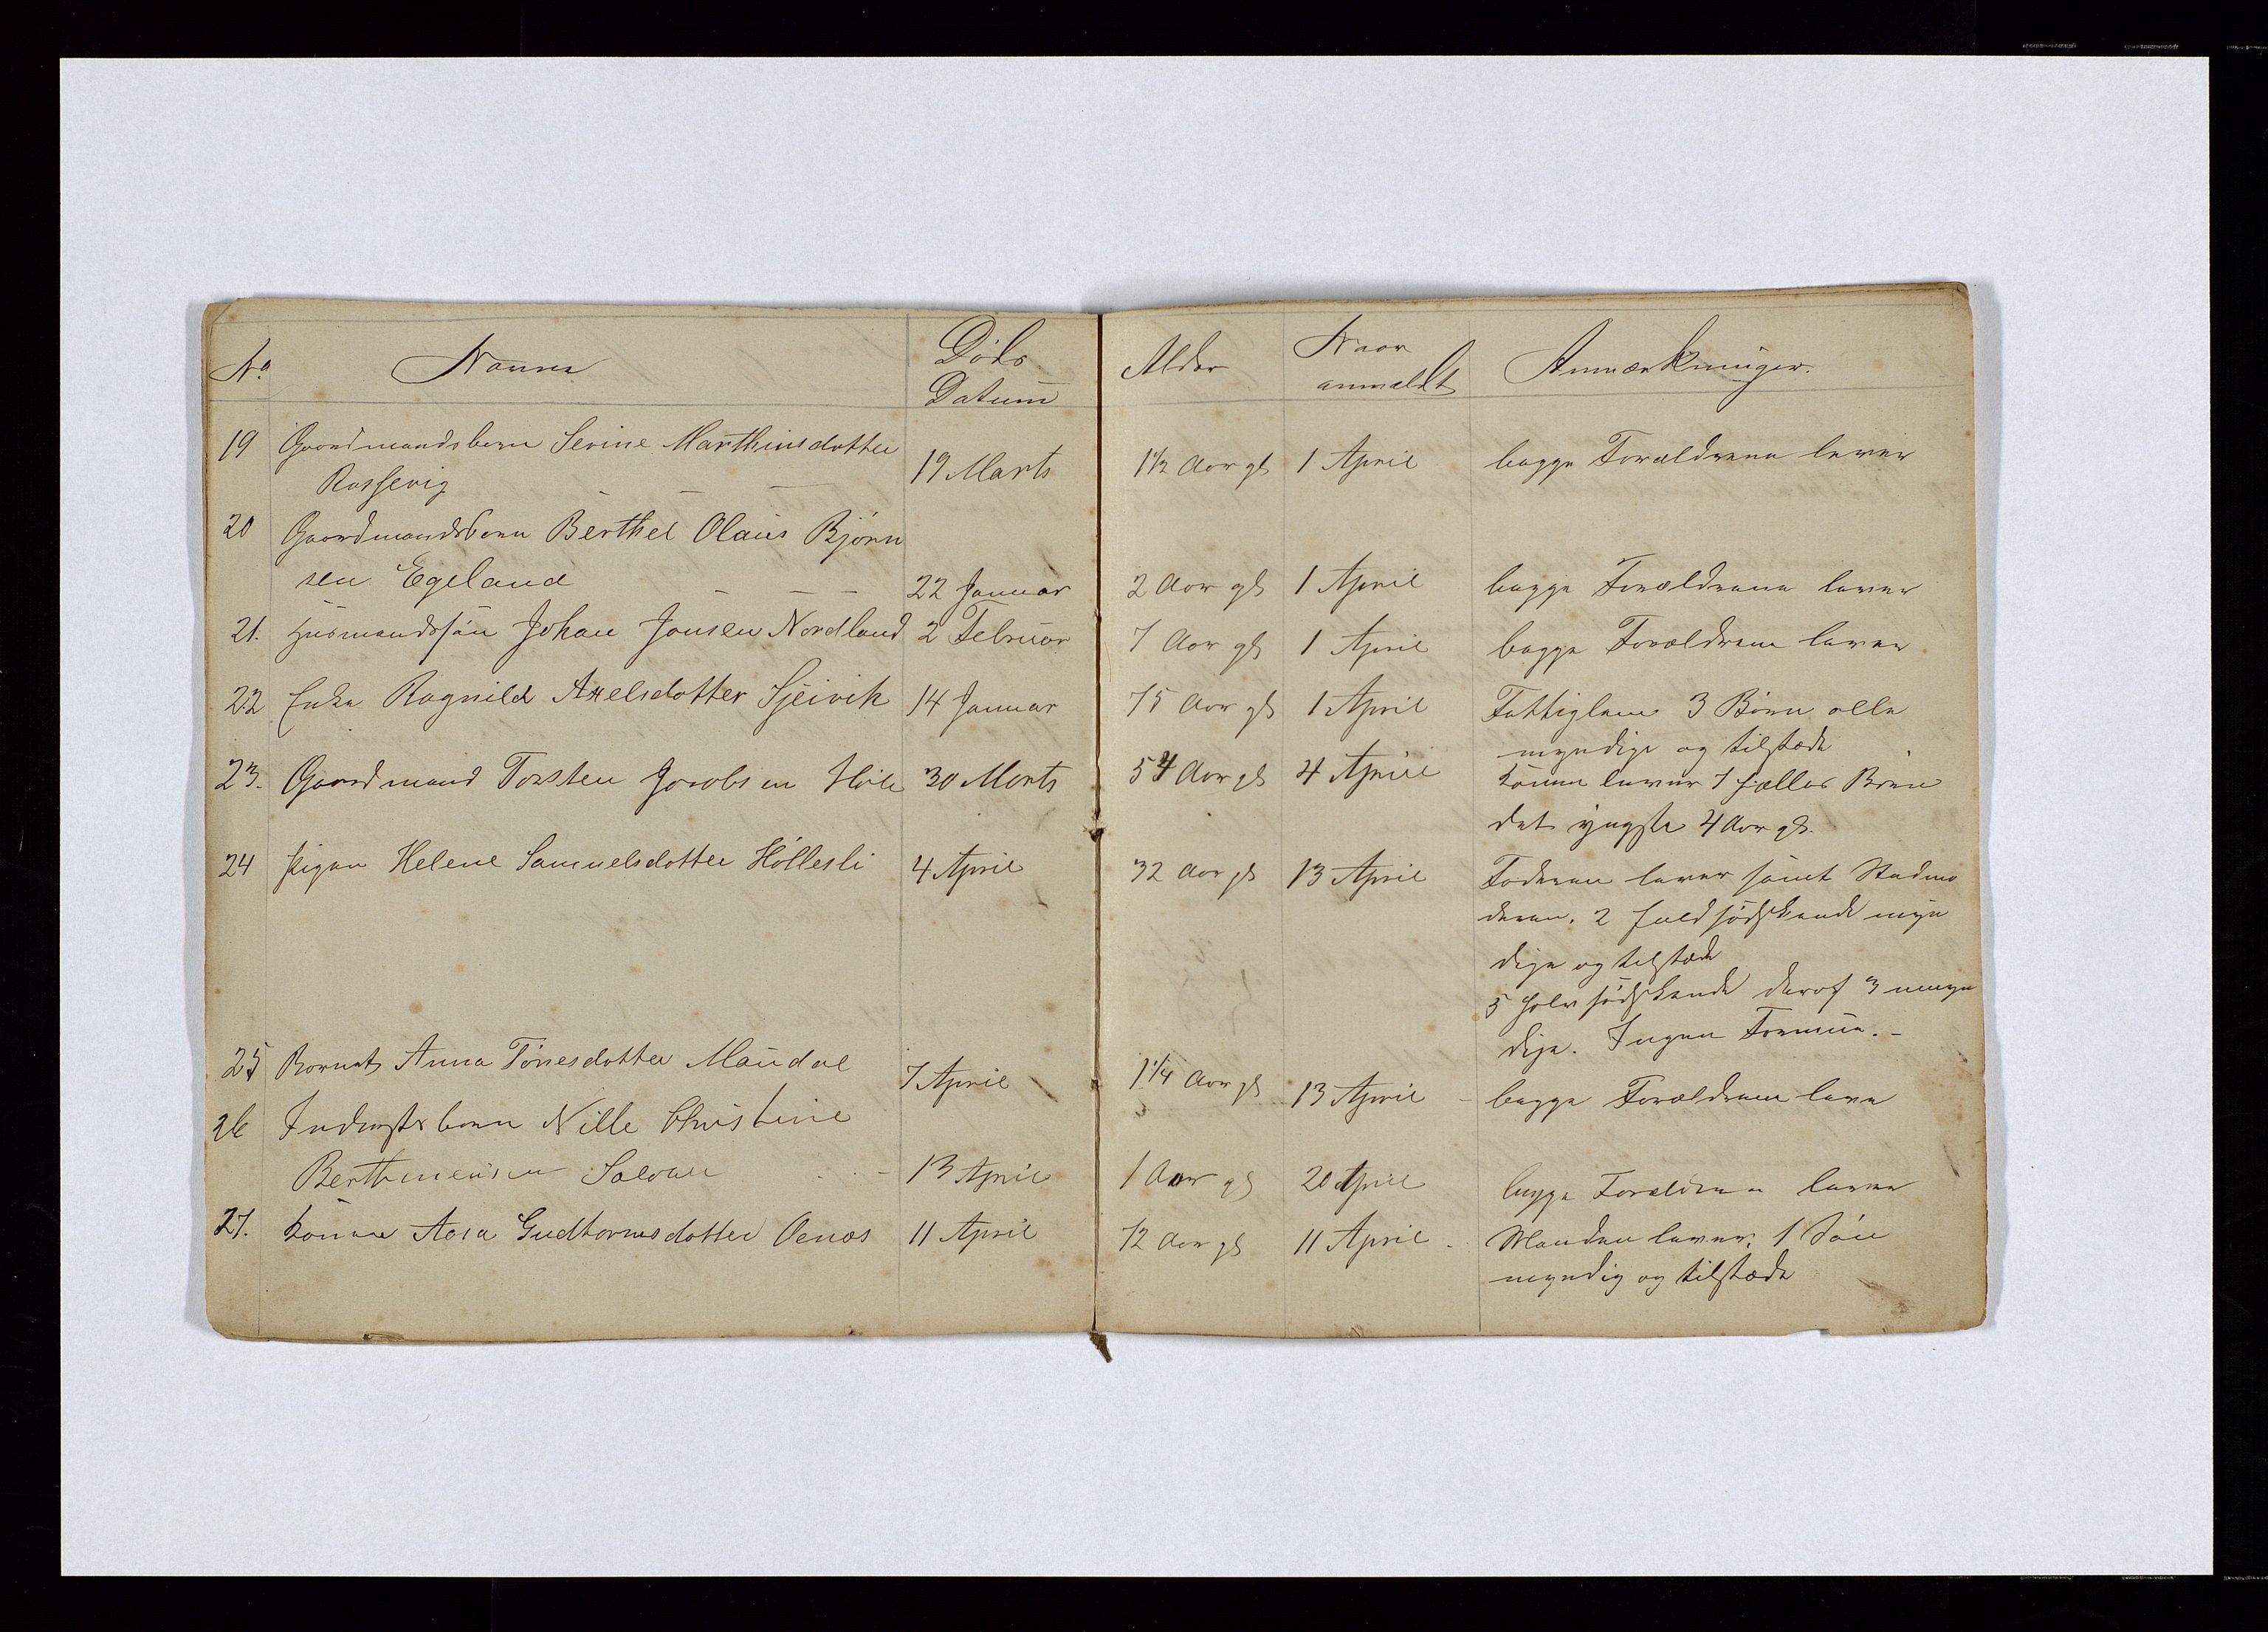 No Navne Døds Datum Alder Naar anmeldt Anmærkninger.
19 Gaardmandsbarn Serine Marthinsdotter
Rossevig 19 Marts 1½ Aar gl 1 April begge Forældrene lever
20 Gaardmandsbarn Berthel Olaus Bjørn
sen Egeland 22 Januar 2 Aar gl 1 April begge Forældrene lever
21. Husmandssøn Johan Jonsen Nordland 2 Februar 7 Aar gl 1 April begge Forældrene lever
22 Enke Ragnild Axelsdotter Sjeivik 14 Januar 75 Aar gl 1 April Fattiglem 3 Børn alle
myndige og tilstæde
23. Gaardmand Torsten Jacobsen Høle 30 Marts 54 Aar gl 4 April Konen lever 7 fælles Børn
det yngste 4 Aar gl.
24 Pigen Helene Samuelsdotter Høllesli 4 April 32 Aar gl 13 April Faderen lever samt Stedmo
deren. 2 Fuldsødskende myn
dige og tilstæde
5 halvsødskende deraf 3 umyn
dige. Ingen Formue. -
25 Barnet Anna Tønesdotter Maudal 7 April 1¼ Aar gl 13 April - begge Forældrene leve
26 Inderstsbarn Nille Christine
Berthineusen Salvan 13 April 1 Aar gl 20 April begge Forældrene lever
27. Konen Aasa Gudtormsdotter Oenes 11 April 72 Aar gl 11 April - Manden lever. 1 Søn
myndig og tilstæde